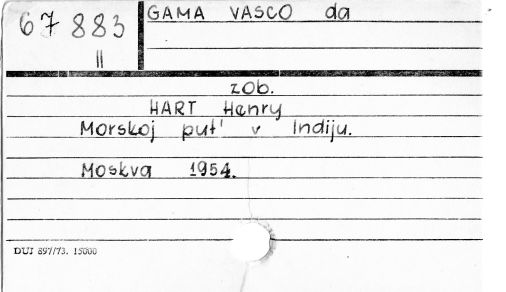 67 883
II
GAMA VASCO da
zob.
HART Henry
Morskoj put' v Indiju.
Moskva 1954.
DUJ 897/73. 15000